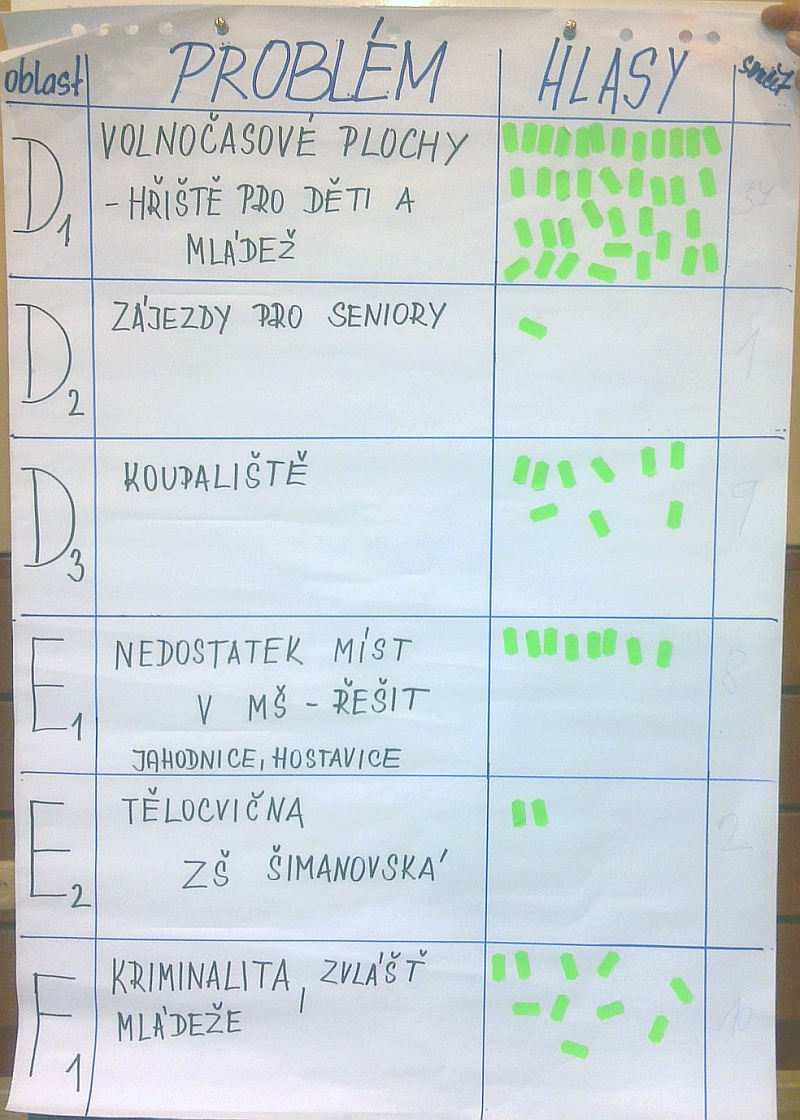 oblast PROBLÉM HLASY
D1 VOLNOČASOVÉ PLOCHY 37
- HŘIŠTĚ PRO DĚTI A
MLÁDEŽ
D2 ZÁJEZDY PRO SENIORY 1
D3 KOUPALIŠTĚ 9
E1 NEDOSTATEK MÍST 8
V MŠ - ŘEŠIT
JAHODNICE, HOSTAVICE
E2 TĚLOCVIČNA 2
ZŠ ŠIMANOVSKÁ
F1 KRIMINALITA, ZVLÁŠŤ 10
MLÁDEŽE